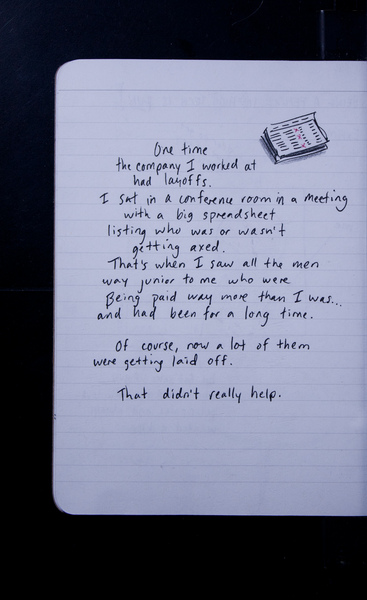 One time
the company I worked at
had layoffs.
I sat in a conference room in a meeting
with a big spreadsheet
listing who was or wasn't
getting axed.
That's when I saw all the men
way junior to me who were
Being paid way more than I was...
and had been for a long time.
Of course, now a lot of them
were getting laid off.
That didn't really help.